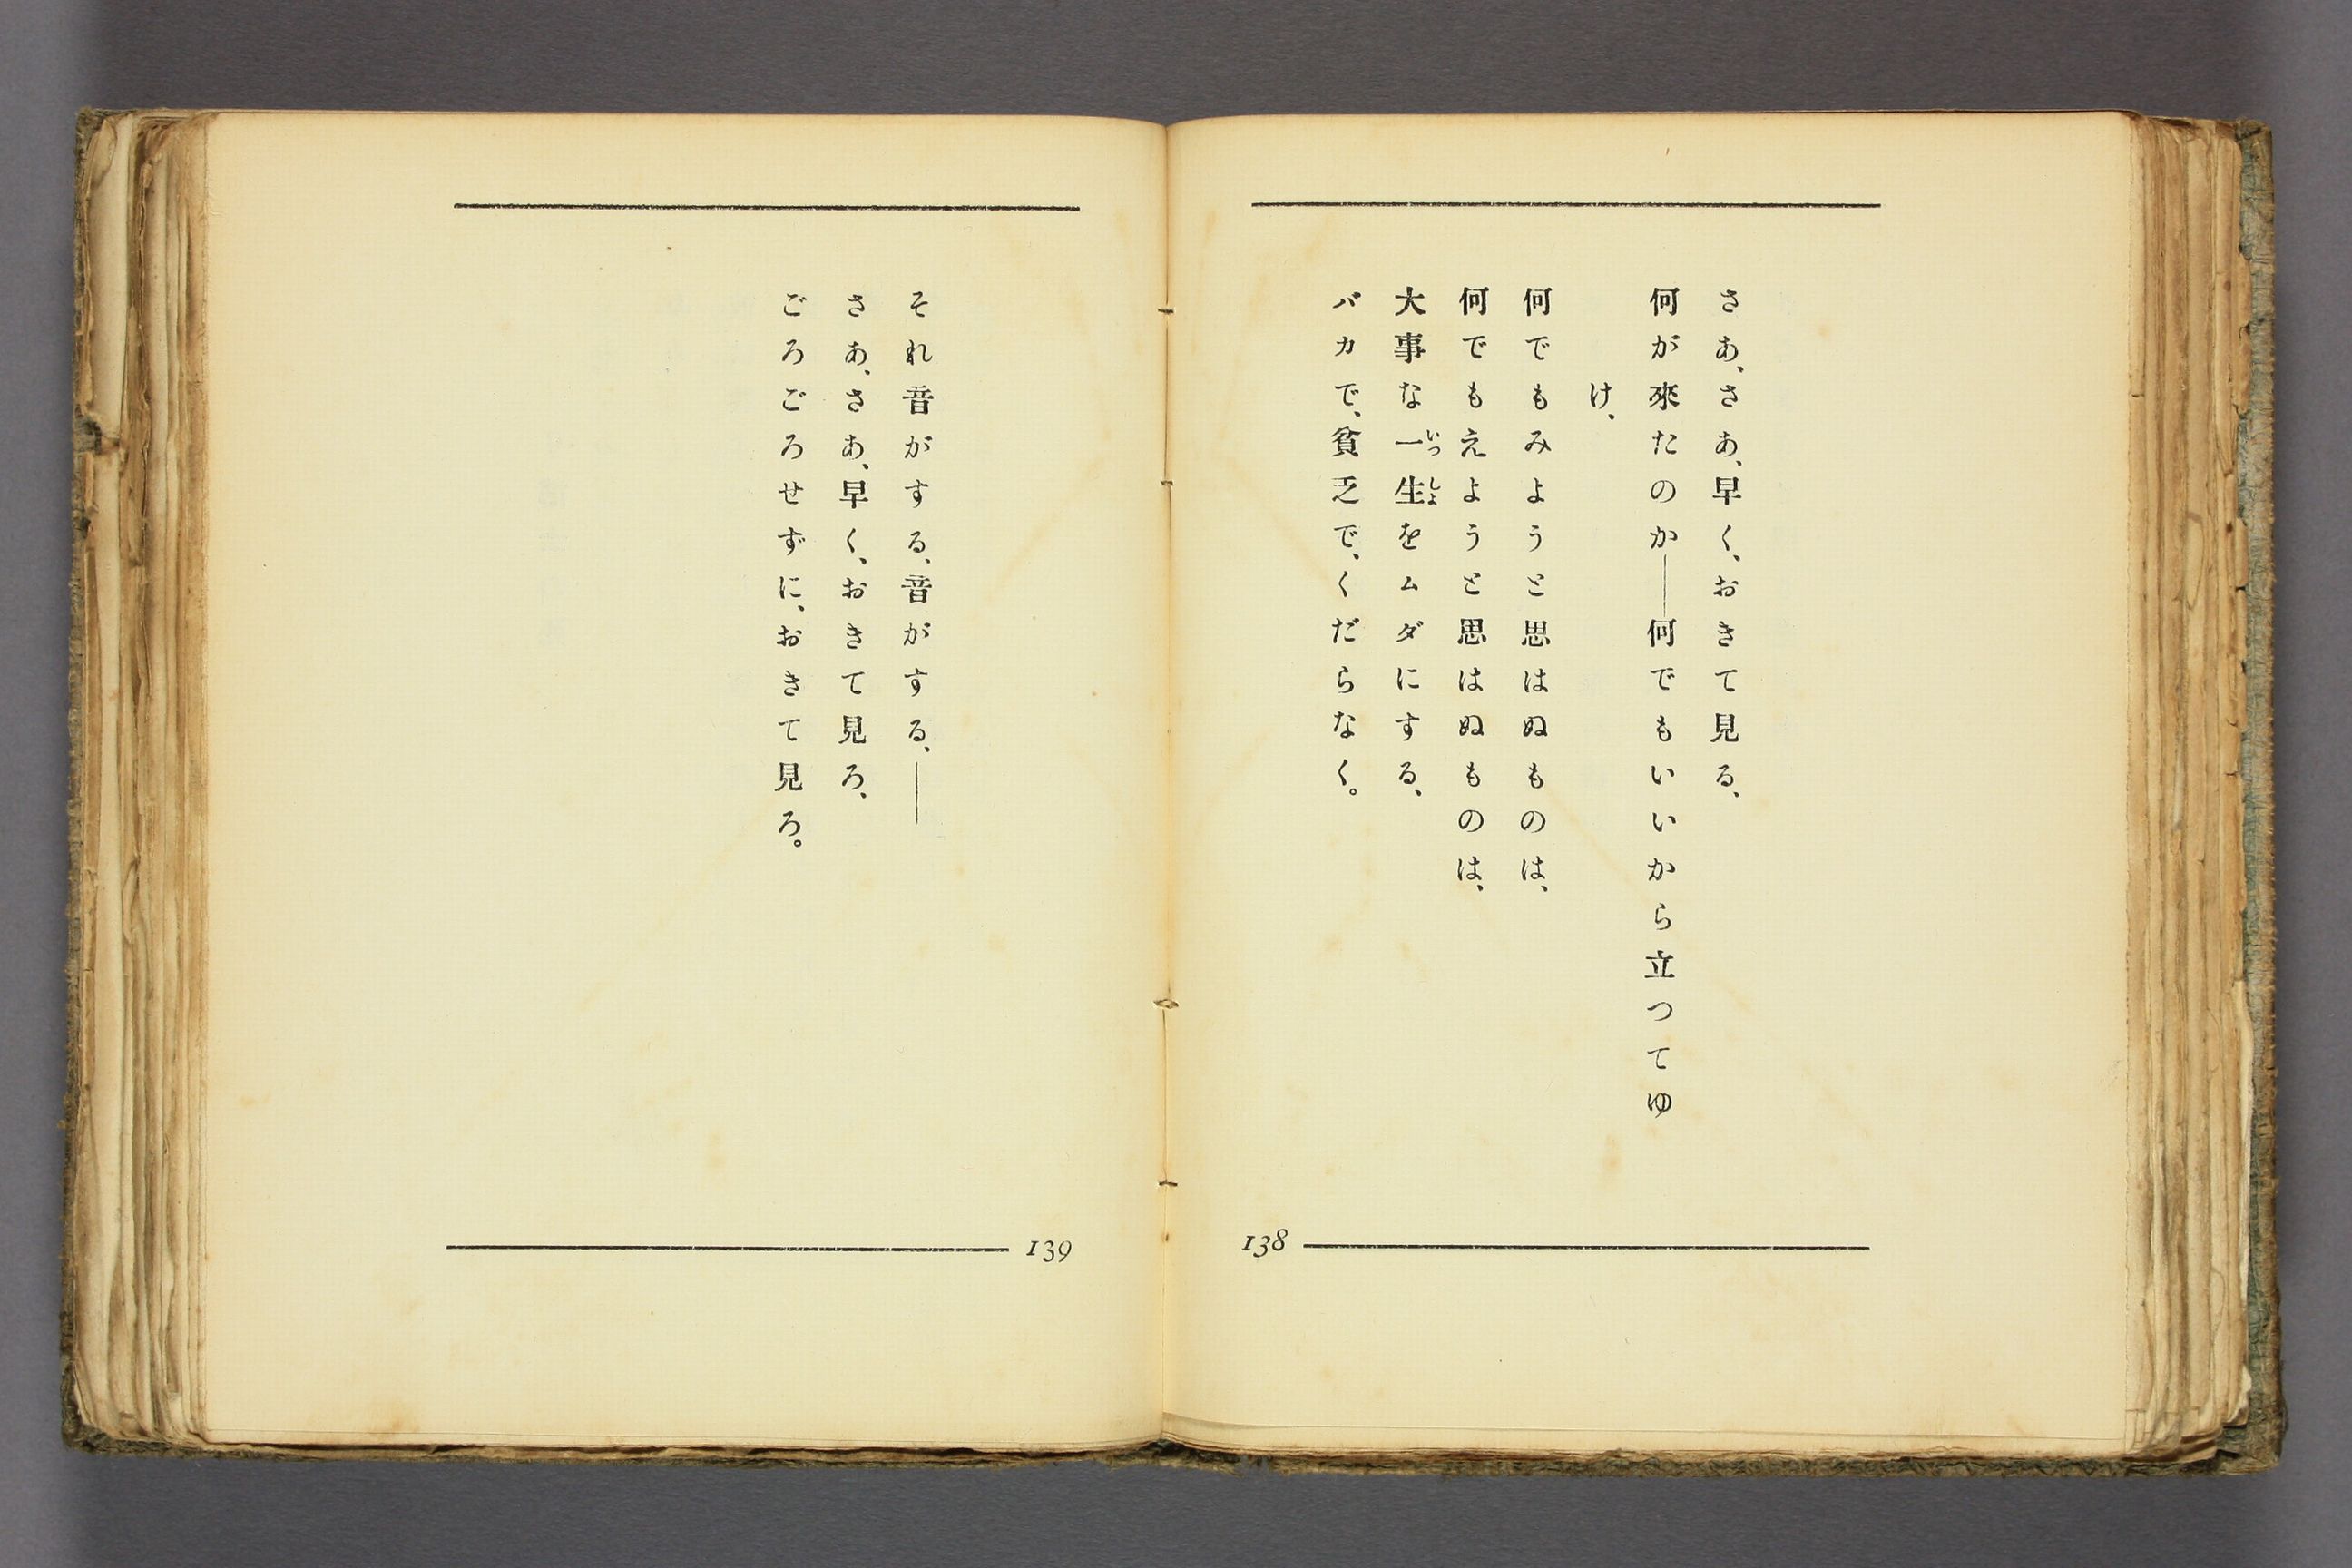 さあ、さあ、早く、おきて見る、
何が來たのか――何でもいいから立つてゆ
け、
何でもみようと思はぬものは、
何でもえようと思はぬものは、
大事な一生をムダにする、
いつしよ
バカで、貧乏で、くだらなく。
138
それ音がする、音がする、――
さあ、さあ、早く、おきて見ろ、
ごろごろせずに、おきて見ろ。
139